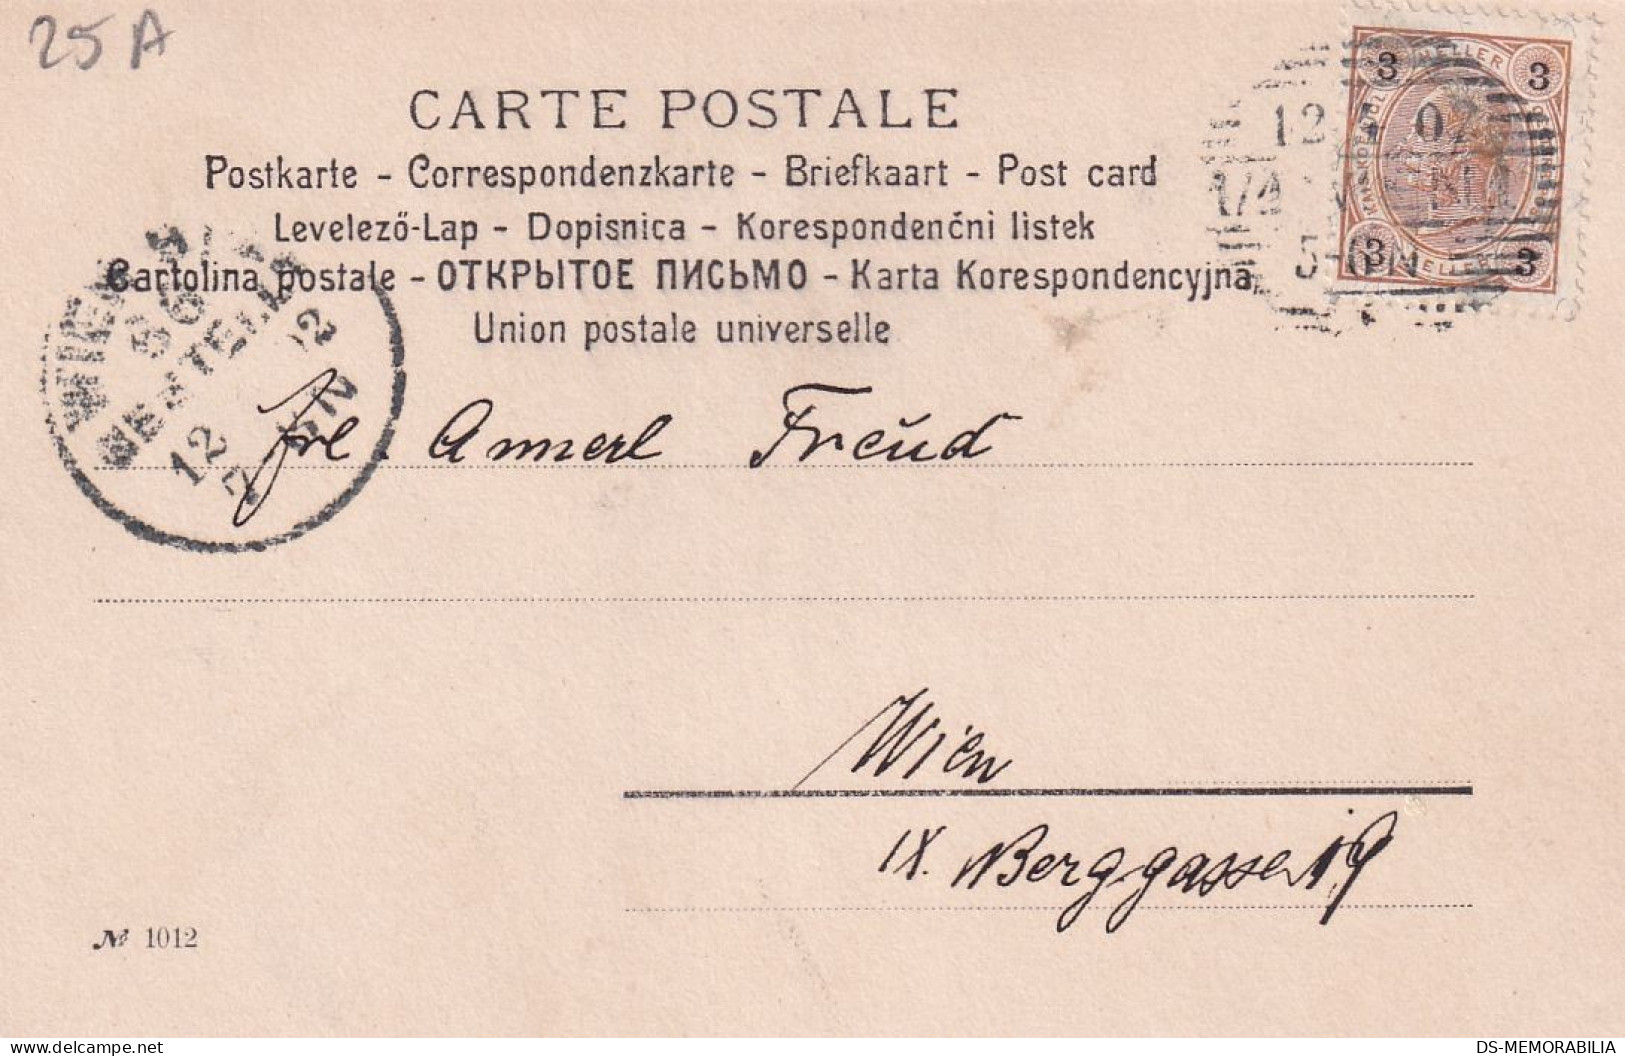 25 A
CARTE POSTALE
Postkarte - Correspondenzkarte - Briefkaart - Post card
Levelező-Lap - Dopisnica - Korespondenčni listek
Cartolina postale - ОТКРЫТОЕ ПИСЬМО - Karta Korespondencyjna
Union postale universelle
3 HELLER 3
3 HELLER 3
12 02
1/4 WIEN
WIEN
BESTELLT
12 02
frl. Annerl Freud
Wien
IX. Berggasse 19
№ 1012
delcampe.net
DS-MEMORABILIA